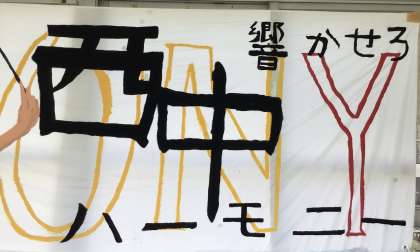 響かせろ
西中
ON Y
ハーモニー